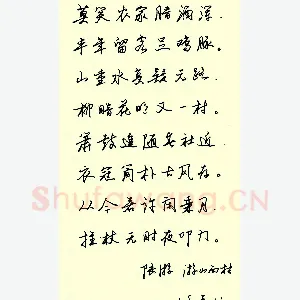 莫笑农家腊酒浑
丰年留客足鸡豚。
山重水复疑无路
柳暗花明又一村。
箫鼓追随春社近
衣冠简朴古风存。
从今若许闲乘月
拄杖无时夜叩门。
陆游 游山西村
Shufawang.CN